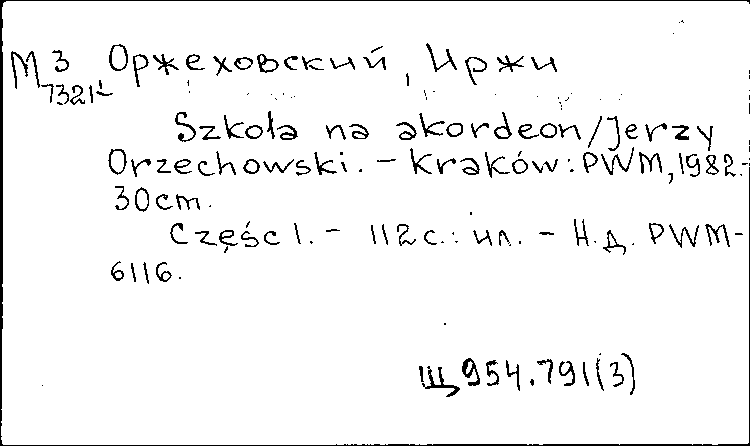 М 3 Оржеховский, Иржи
7321
Szkoła na akordeon/Jerzy
Orzechowski. – Kraków: PWM, 1982.–
30cm.
Część 1. – 112 с.: ил. – Н.д. PWM-
6116.
Щ954.791(3)